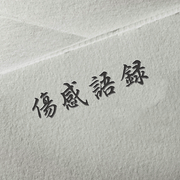 傷感語録